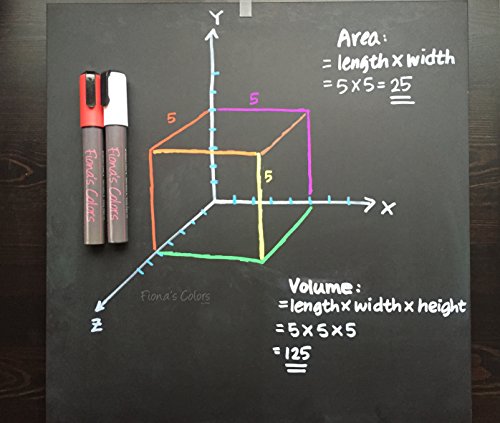 Y
Area:
= length × width
= 5 × 5 = 25
5
5
5
Fiona's Colors
Fiona's Colors
X
Z
Fiona's Colors
Volume:
= length × width × height
= 5 × 5 × 5
= 125